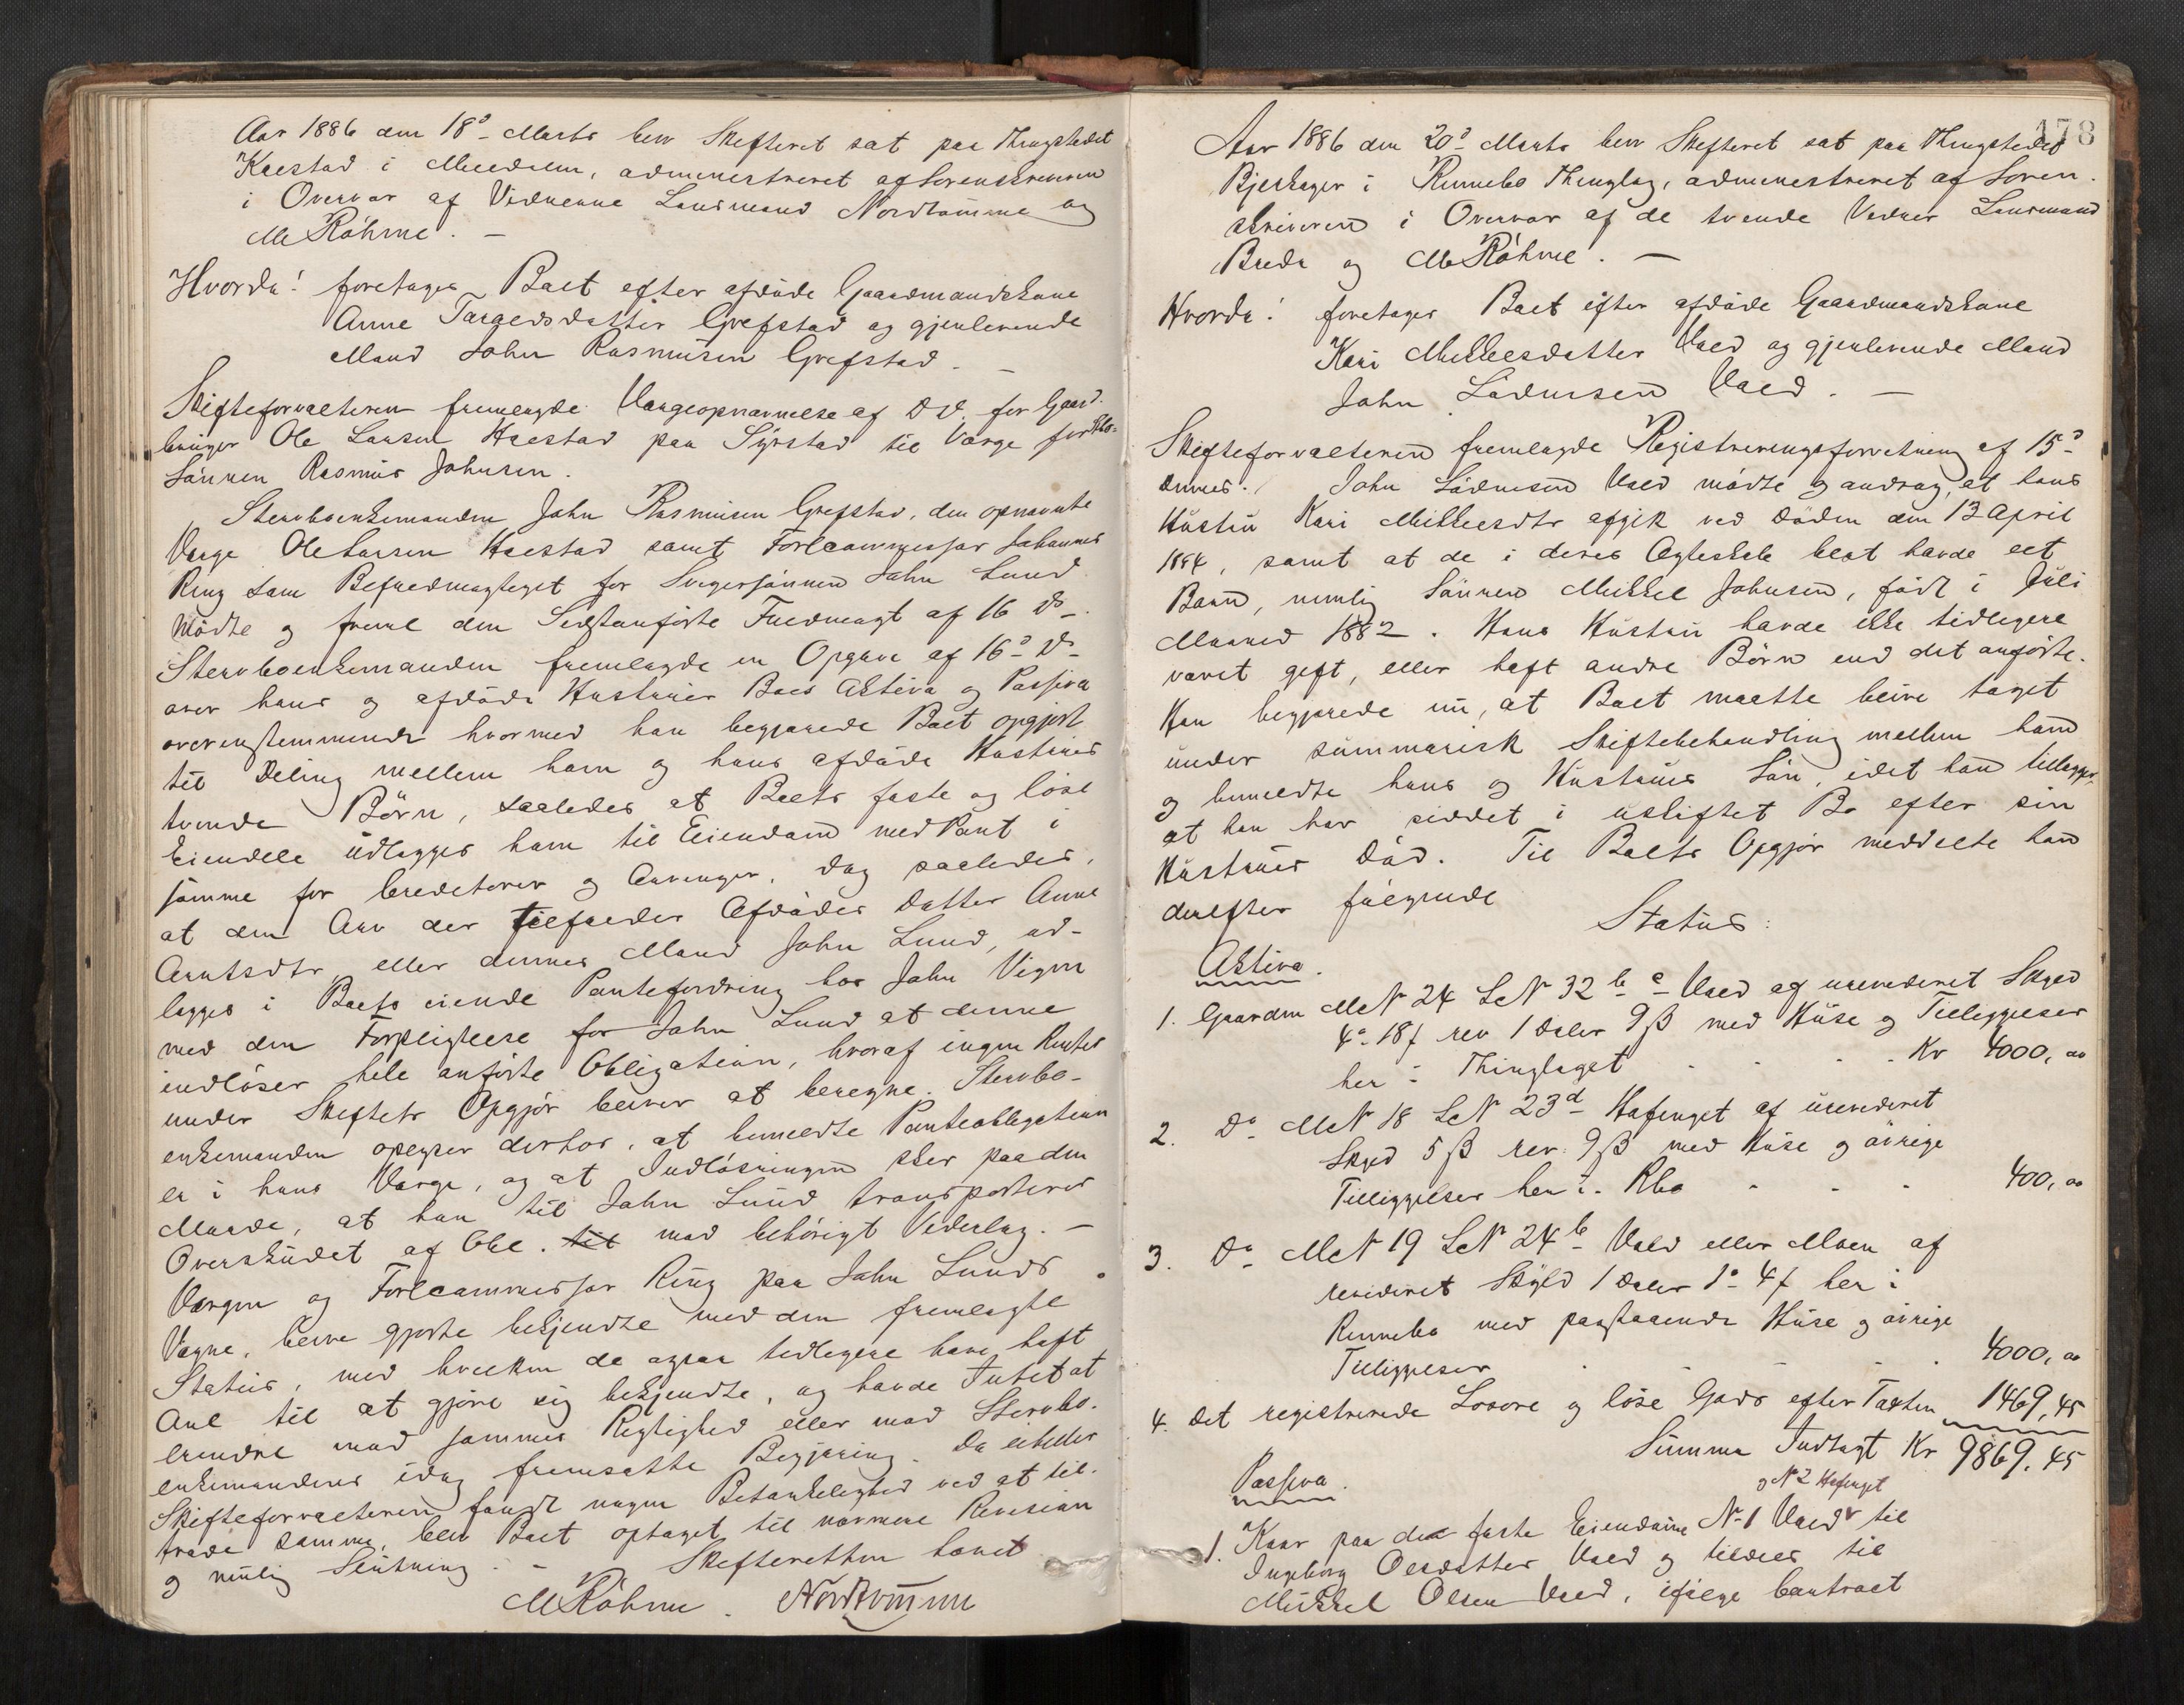 Aar 1886 den 18d Marts blev Skifteret sat paa Thingstedet
Haestad i Meedalen, administreret af Sorenskriveren
i Overvær af Vidnerne Lensmand Nordtømme og
M Røhme. —
Hvorda! foretages Boet efter afdøde Gaardmandskone
Anne Targedsdatter Grefstad og gjenlevende
Mand John Rasmusen Grefstad. —
Skifteforvalteren fremlagde Værgeopnævnelse af D.D. for Gaard-
bruger Ole Larsen Haestad paa Syrstad til Værge for Sbo-
Sønnen Rasmus Johnsen.
Stervboenkemanden John Rasmusen Grefstad, den opnævnte
Værge Ole Larsen Haestad samt Forlcommissær Johannes
Ring som Befuldmægtiget for Svigersønnen John Lund
mødte og freml den Sidstanførte Fuldmagt af 16 ds.
Stervboenkemanden fremlagde en Opgave af 16d Ds
over hans og afdøde Hustrues Boes Aktiva og Passiva
overensstemmende hvormed han begjærede Boet opgjort
til Deling mellem ham og hans afdøde Hustrues
tvende Børn, saaledes at Boets faste og løse
Eiendele udlægges ham til Eiendom med Pant i
samme for Creditorer og Arvinger, dog saaledes,
at den Arv der tilfalder Afdødes Datter Anne
Arntsdtr eller dennes Mand John Lund, ud-
lægges i Boets eiende Pantefordring hos John Vigen
med den Forpligtelse for John Lund at denne
indløser hele anførte Obligation, hvoraf ingen Renter
under Skiftets Opgjør bliver at beregne. Stervbo-
enkemanden oplyser derhos, at bemeldte Panteobligation
er i hans Værge, og at Indløsningen sker paa den
Maade, at han til John Lund transporterer
Overskudet af Obl. til mod behørigt Vederlag. —
Værgen og Forlcommissær Ring paa John Lunds
Vegne, bleve gjorte bekjendte med den fremlagte
Status, med hvilken de ogsaa tidligere have haft
Anl til at gjøre sig bekjendte, og havde Intet at
erindre mod sammes Rigtighed eller mod Stervbo-
enkemandens idag fremsatte Begjæring. Da eiheller
Skifteforvalteren fandt nogen Betænkelighed ved at til-
træde samme, blev Boet optaget til nærmere Revision
og mulig Slutning. — Skifteretten hævet
M Røhme. Nordtømme
178
Aar 1886 den 20d Marts blev Skifteret sat paa Thingstedet
Bjerkager i Rennebo Thinglag, administreret af Soren-
skriveren i Overvær af de tvende Vidner Lensmand
Breda og M Røhme. —
Hvorda! foretages Boet efter afdøde Gaardmandskone
Kari Mikkelsdatter Vold og gjenlevende Mand
John Lødnesen Vold. —
Skifteforvalteren fremlagde Registreringsforretning af 15d
dennes. / John Lødnesen Vold mødte og androg, at hans
Hustru Kari Mikkelsdtr afgik ved Døden den 13 April
1884, samt at de i deres Ægteskab blot havde eet
Barn, nemlig Sønnen Mikkel Johnsen, født i Juli
Maaned 1882. Hans Hustru havde ikke tidligere
været gift, eller haft andre Børn end det anførte.
Han begjærede nu, at Boet maatte blive taget
under summarisk Skiftebehandling mellem ham
og bemeldte hans og Hustrues Søn, idet han tillægger,
at han har siddet i uskiftet Bo efter sin
Hustrues Død. Til Boets Opgjør meddelte han
derefter følgende
Status:
Aktiva.
1. Gaarden MN 24 LN 32 b c Vold af urevideret Skyld
4o 18f rev 1 Daler 9ß med Huse og Tilliggelser
her i Thinglaget . . . Kr 4000, 00
2. Do MN 18 LN 23d Hafenget af urevideret
Skyld 5ß rev. 9ß med Huse og øvrige
Tilliggelser her i Rbo - - - 400, 00
3. Do MN 19 LN 24b Vold eller Moen af
revideret Skyld 1 Daler 1o 4f her i
Rennebo med paastaaende Huse og øvrige
Tilliggelser . - - - . 4000, 00
4. Det registrerede Løsøre og løse Gods efter Taxten 1469, 45
Summa Indtægt Kr 9869. 45
Passiva.
og N 2 Hafenget
1. Kaar paa den faste Eiendom No 1 Vold til
Ingeborg Olsdatter Vold og tildels til
Mikkel Olsen Vold, ifølge Contract